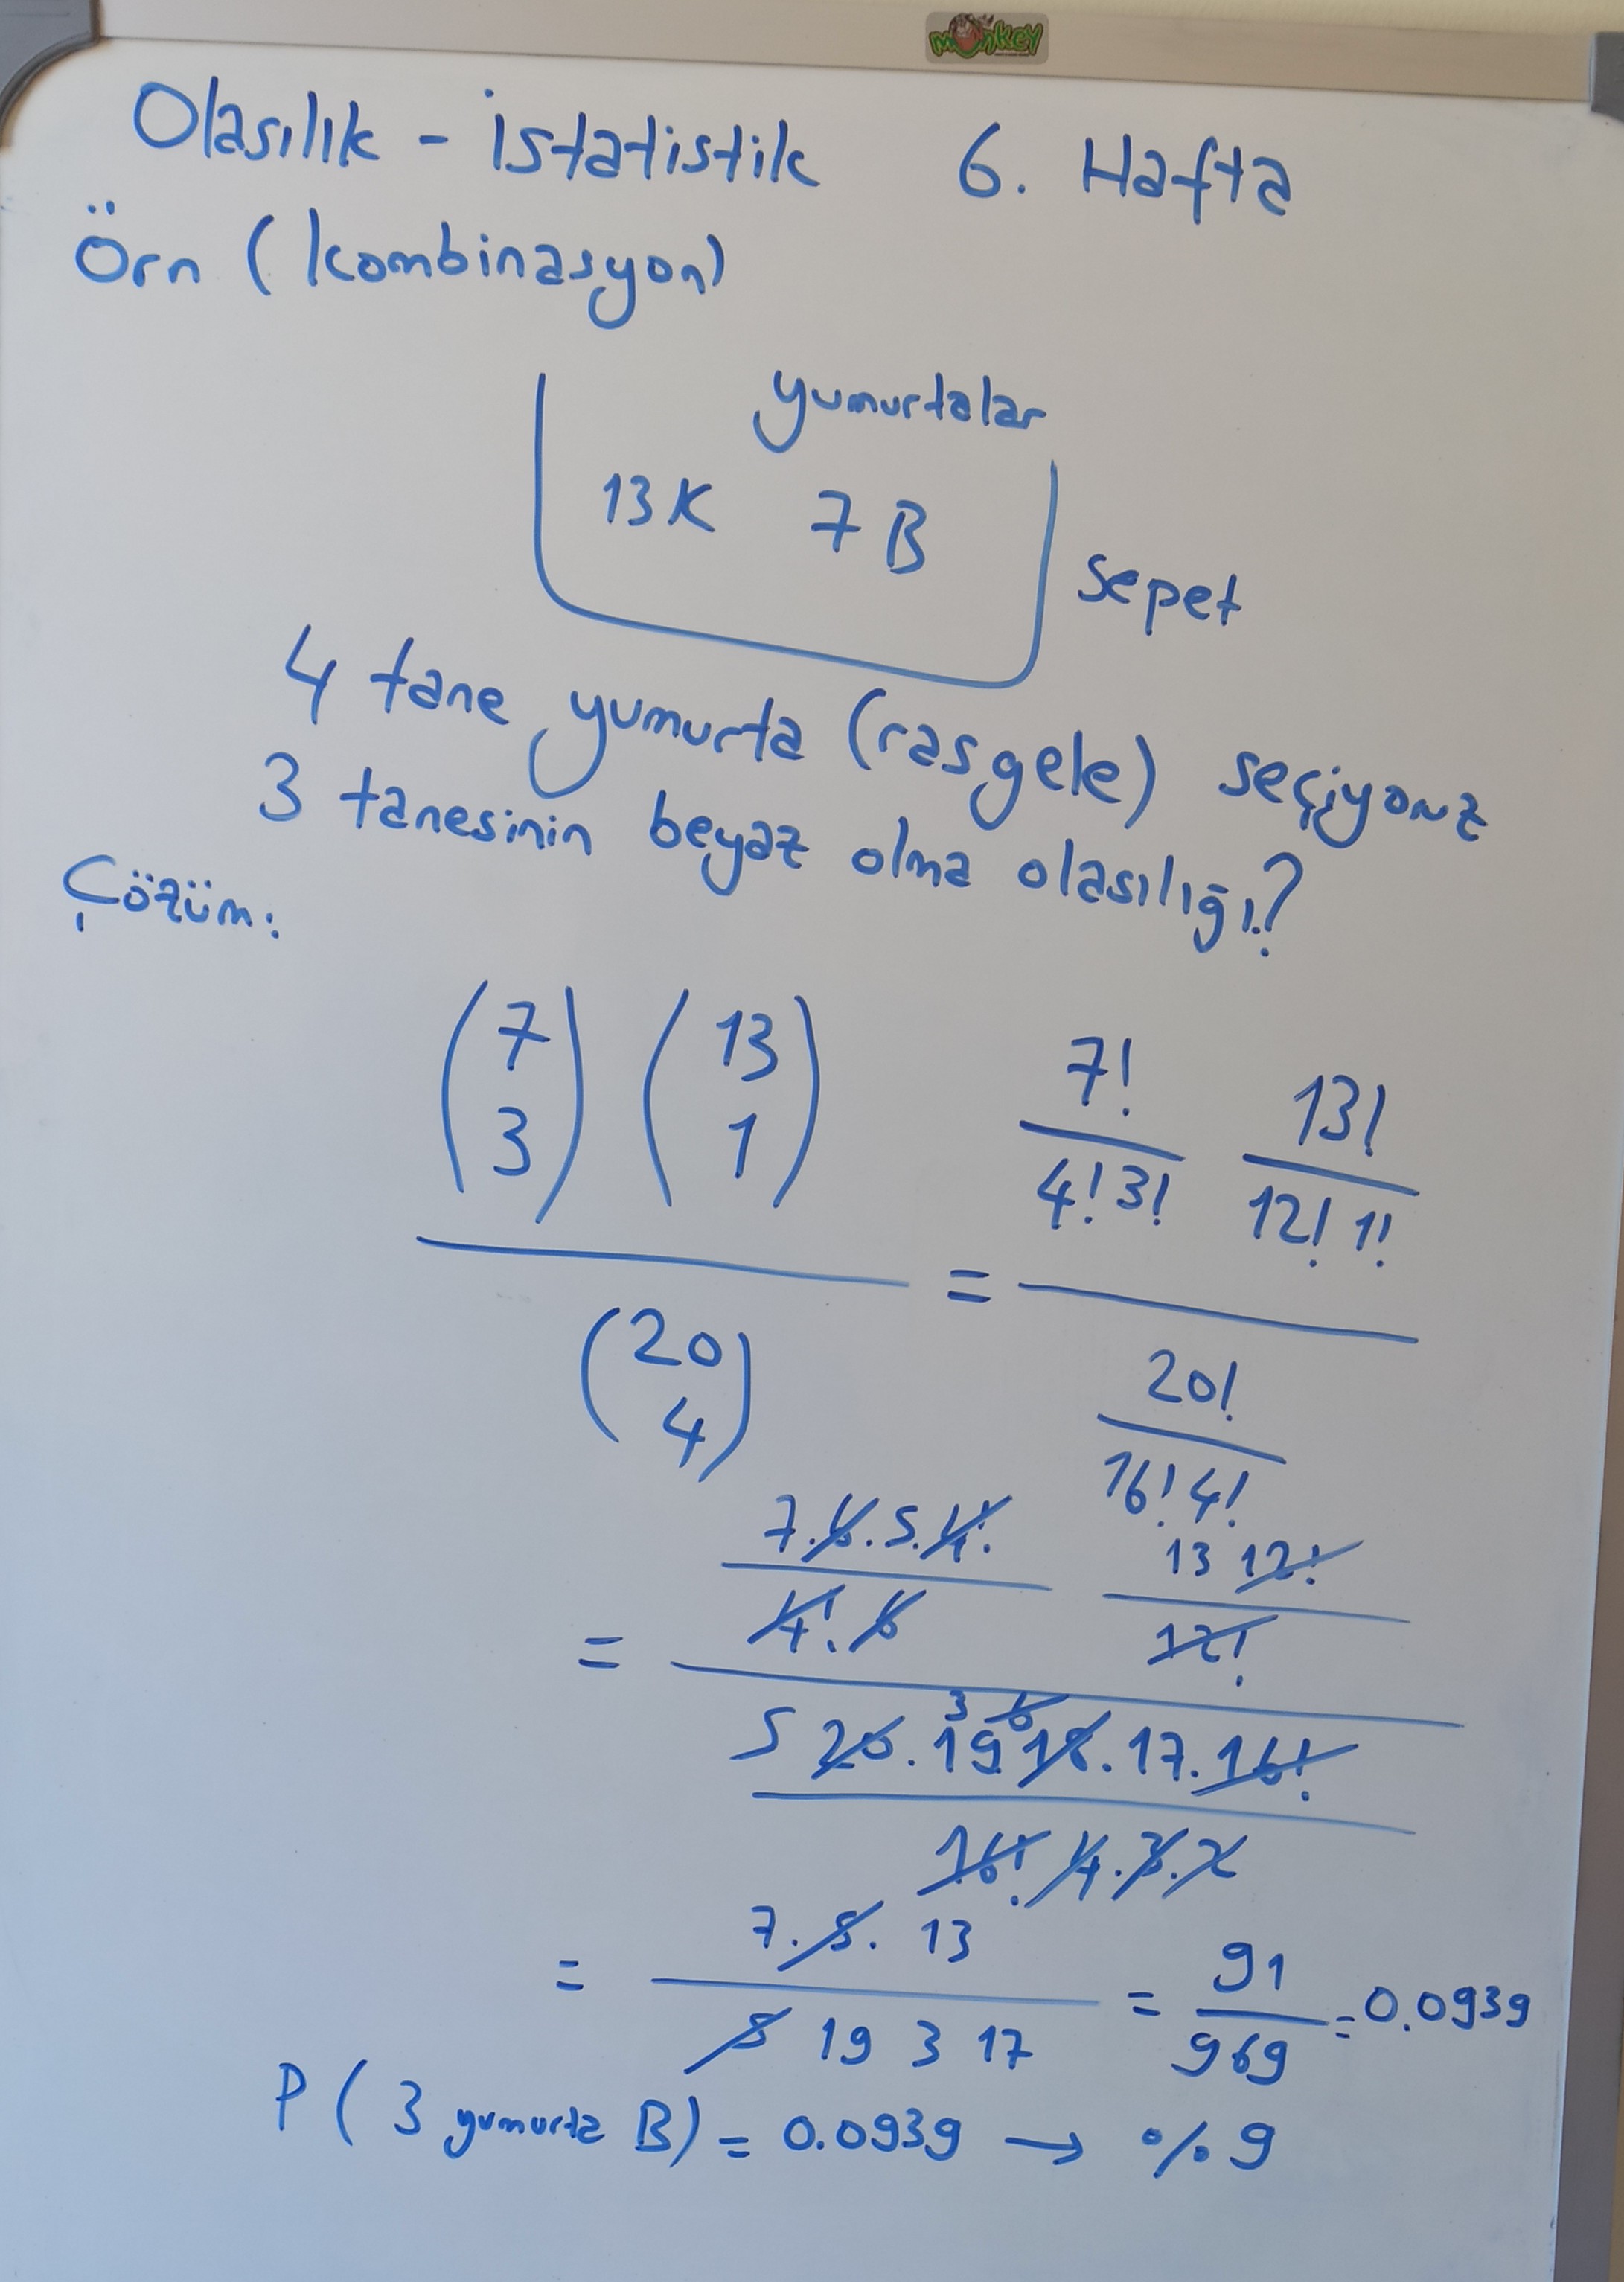 monkey
Olasılık - istatistik 6. Hafta
Örn (kombinasyon)
yumurtalar
13K 7B
sepet
4 tane yumurta (rasgele) seçiyoruz
3 tanesinin beyaz olma olasılığı?
Çözüm:
(7 3) (13 1) / (20 4) = 7!/(4! 3!) 13!/(12! 1!) / 20!/(16! 4!)
= 7.6.5.4!/(4!.6) 13 12!/12! / 5 20.19 3 6 18.17.16!/(16! 4.3.2)
= 7.5.13 / 5 19 3 17 = 91/969 = 0.0939
P(3 yumurta B) = 0.0939 → %9